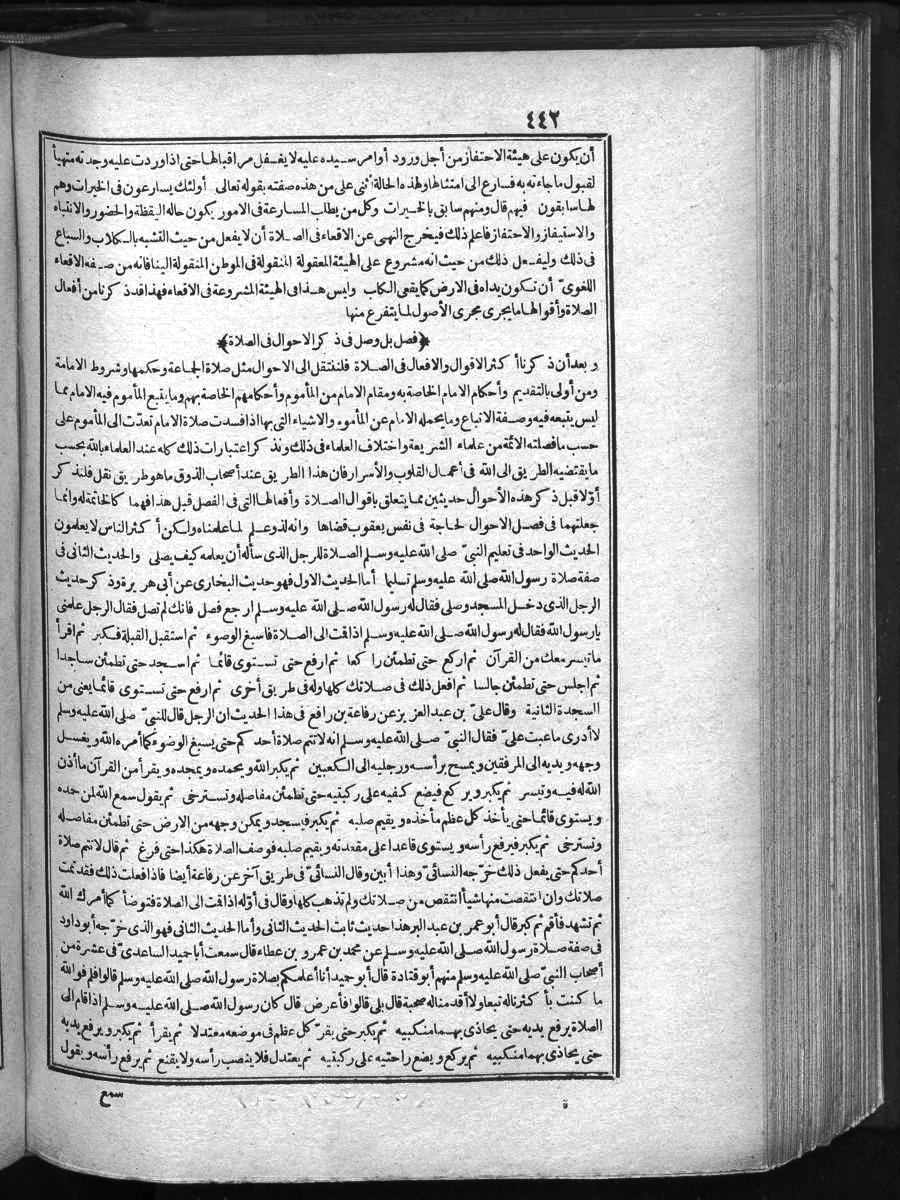 ٤٤٢
أن يكون على هيئة الاحتفاز من أجل ورود أوامر سيده عليه لا يغفل مراقبا لها حتى اذا وردت عليه وجدته متهيأ
لقبول ما جاءته به فسارع الى امتثالها ولهذه الحالة أثنى على من هذه صفته بقوله تعالى أولئك يسارعون فى الخيرات وهم
لها سابقون فيهم قال ومنهم سابق بالخيرات وكل من يطلب المسارعة فى الامور يكون حاله اليقظة والحضور والانتباه
والاستيفاز والاحتفاز فاعلم ذلك فيخرج النهى عن الاقعاء فى الصلاة أن لا يفعل من حيث التشبه بالكلاب والسباع
فى ذلك وليفعل ذلك من حيث انه مشروع على الهيئة المعقولة المنقولة فى الموطن المنقولة الينا فانه من صفه الاقعاء
اللغوىّ أن تكون يداه فى الارض كما يقعى الكلب وليس هذا فى الهيئة المشروعة فى الاقعاء فهذا قد ذكرنا من أفعال
الصلاة وأقوالها ما يجرى مجرى الأصول لما يتفرع منها
﴿فصل بل وصل فى ذكر الاحوال فى الصلاة﴾
وبعد أن ذكرنا أكثر الاقوال والافعال فى الصلاة فلننتقل الى الاحوال مثل صلاة الجماعة وحكمها وشروط الامامة
ومن أولى بالتقديم وأحكام الامام الخاصة به ومقام الامام من المأموم وأحكامهم الخاصة بهم وما يتبع المأموم فيه الامام مما
ليس يتبعه فيه وصفة الاتباع وما يحمله الامام عن المأموم والاشياء التى بها اذا فسدت صلاة الامام تعدّت الى المأموم على
حسب ما فصلته الائمة من علماء الشريعة واختلاف العلماء فى ذلك ونذكر اعتبارات ذلك كله عند العلماء بالله بحسب
ما يقتضيه الطريق الى الله فى أعمال القلوب والأسرار فان هذا الطريق عند أصحاب الذوق ما هو طريق نقل فلنذكر
أوّلا قبل ذكر هذه الأحوال حديثين مما يتعلق باقوال الصلاة وأفعالها التى فى الفصل قبل هذا فهما كالخاتمة له وانما
جعلتهما فى فصل الاحوال لحاجة فى نفس يعقوب قضاها وانه لذو علم لما علمناه ولكن أكثر الناس لا يعلمون
الحديث الواحد فى تعليم النبىّ صلى الله عليه وسلم الصلاة للرجل الذى سأله أن يعلمه كيف يصلى والحديث الثانى فى
صفة صلاة رسول الله صلى الله عليه وسلم تسليما أما الحديث الاول فهو حديث البخارى عن أبى هريرة وذكر حديث
الرجل الذى دخل المسجد وصلى فقال له رسول الله صلى الله عليه وسلم ارجع فصل فانك لم تصل فقال الرجل علمنى
يارسول الله فقال له رسول الله صلى الله عليه وسلم اذا قمت الى الصلاة فاسبغ الوضوء ثم استقبل القبلة فكبر ثم اقرأ
ما تيسر معك من القرآن ثم اركع حتى تطمئن راكعا ثم ارفع حتى تستوى قائما ثم اسجد حتى تطمئن ساجدا
ثم اجلس حتى تطمئن جالسا ثم افعل ذلك فى صلاتك كلها وله فى طريق أخرى ثم ارفع حتى تستوى قائما يعنى من
السجدة الثانية وقال علىّ بن عبد العزيز عن رفاعة بن رافع فى هذا الحديث ان الرجل قال للنبىّ صلى الله عليه وسلم
لا أدرى ما عبت علىّ فقال النبىّ صلى الله عليه وسلم انه لا تتم صلاة أحدكم حتى يسبغ الوضوء كما أمره الله ويغسل
وجهه ويديه الى المرفقين ويمسح برأسه ورجليه الى الكعبين ثم يكبر الله ويحمده ويمجده ويقرأ من القرآن ما أذن
الله له فيه وتيسر ثم يكبر ويركع فيضع كفيه على ركبتيه حتى تطمئن مفاصله وتسترخى ثم يقول سمع الله لمن حمده
ويستوى قائما حتى يأخذ كل عظم مأخذه ويقيم صلبه ثم يكبر فيسجد ويمكن وجهه من الارض حتى تطمئن مفاصله
وتسترخى ثم يكبر فيرفع رأسه ويستوى قاعدا على مقعدته ويقيم صلبه فوصف الصلاة هكذا حتى فرغ ثم قال لا تتم صلاة
أحدكم حتى يفعل ذلك خرّجه النسائىّ وهذا أبين وقال النسائىّ فى طريق آخر عن رفاعة أيضا فاذا فعلت ذلك فقد تمت
صلاتك وان انتقصت منها شيأ انتقص من صلاتك ولم تذهب كلها وقال فى أوّله اذا قمت الى الصلاة فتوضأ كما أمرك الله
ثم تشهد فأقم ثم كبر قال أبو عمر بن عبد البر هذا حديث ثابت الحديث الثانى وأما الحديث الثانى فهو الذى خرّجه أبو داود
فى صفة صلاة رسول الله صلى الله عليه وسلم عن محمد بن عمرو بن عطاء قال سمعت أبا حميد الساعدىّ فى عشرة من
أصحاب النبىّ صلى الله عليه وسلم منهم أبو قتادة قال أبو حميد أنا أعلمكم بصلاة رسول الله صلى الله عليه وسلم قالوا فلم فوالله
ما كنت بأكثرنا له تبعا ولا أقدمنا له صحبة قال بلى قالوا فاعرض قال كان رسول الله صلى الله عليه وسلم اذا قام الى
الصلاة يرفع يديه حتى يحاذى بهما منكبيه ثم يكبر حتى يقرّ كل عظم فى موضعه معتدلا ثم يقرأ ثم يكبر ويرفع يديه
حتى يحاذى بهما منكبيه ثم يركع ويضع راحتيه على ركبتيه ثم يعتدل فلا ينصب رأسه ولا يقنع ثم يرفع رأسه ويقول
سمع